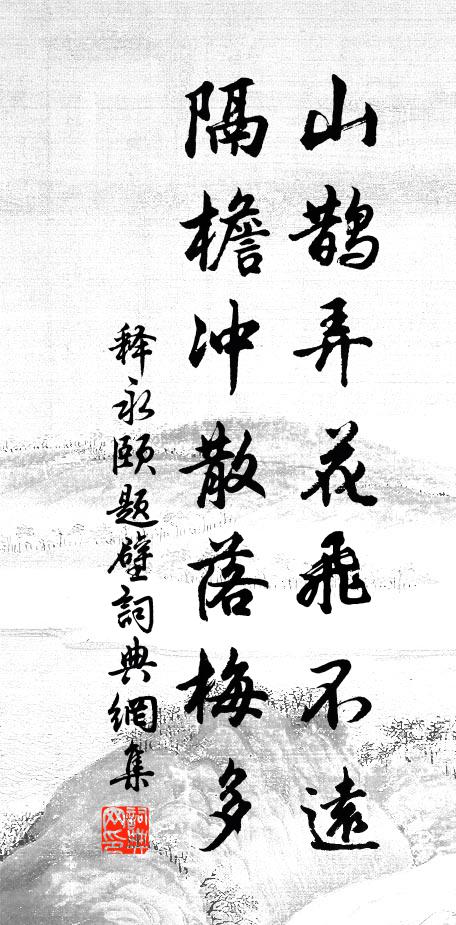 山鹊弄花飛不遠
隔檐冲散落梅多
释永颐题壁詞典網集